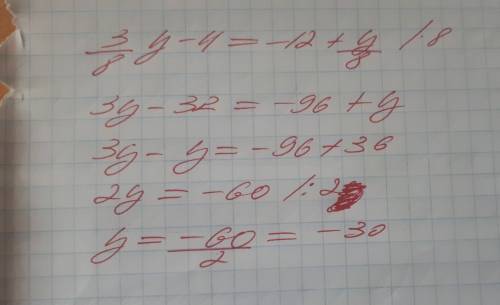 3/8 y - 4 = -12 + y/8 /·8
3y - 32 = -96 + y
3y - y = -96 + 36
2y = -60 /:2
y = -60/2 = -30